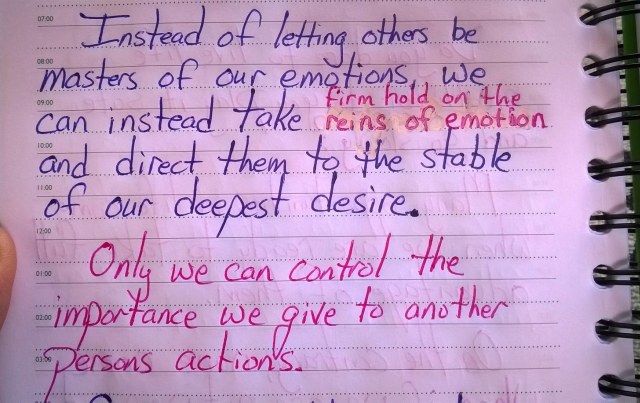 07:00
Instead of letting others be
08:00
masters of our emotions, we
firm hold on the
09:00
can instead take reins of emotion
10:00
and direct them to the stable
11:00
of our deepest desire.
12:00
Only we can control the
01:00
importance we give to another
02:00
persons actions.
03:00